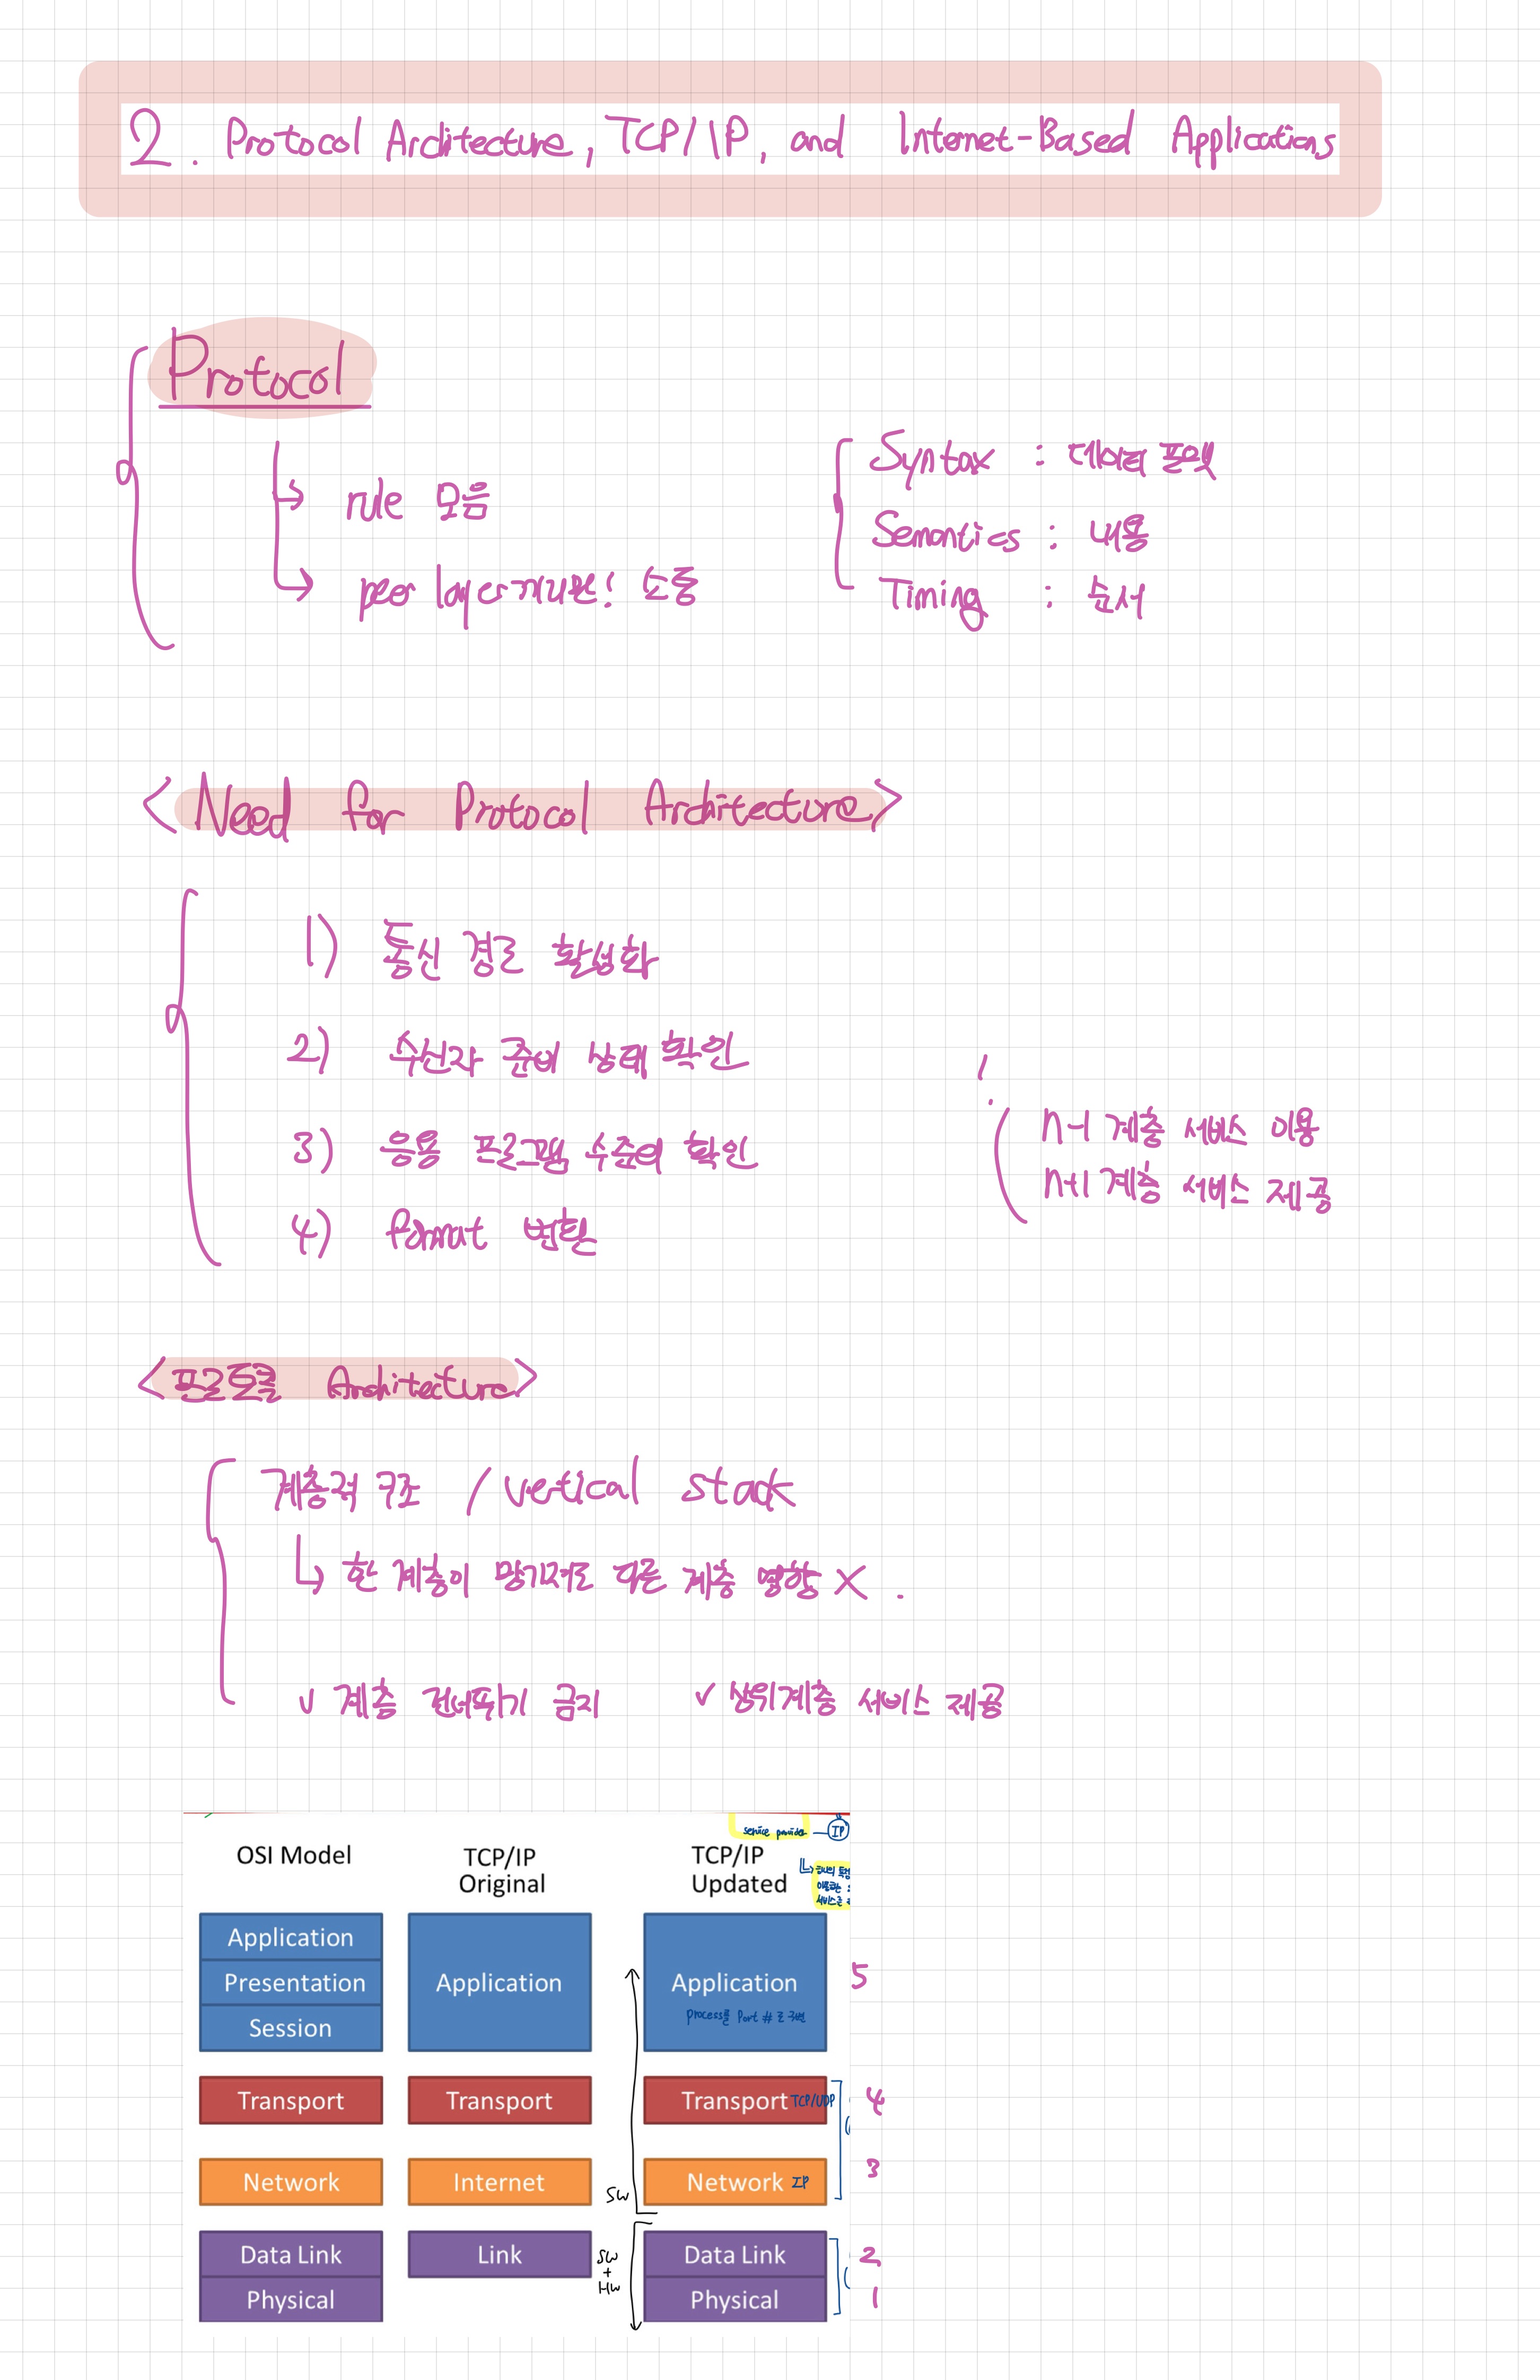 2. Protocol Architecture, TCP/IP, and Internet-Based Applications
Protocol
rule 모음
peer layer끼리만! 소통
Syntax : 데이터 포맷
Semantics : 내용
Timing : 순서
<Need for Protocol Architecture>
1) 통신 경로 활성화
2) 수신자 준비 상태 확인
3) 응용 프로그램 수준의 확인
4) format 변환
n-1 계층 서비스 이용
n+1 계층 서비스 제공
<프로토콜 Architecture>
계층적 구조 / vertical stack
한 계층이 망가져도 다른 계층 영향 X.
✓ 계층 건너뛰기 금지 ✓ 상위계층 서비스 제공
service provider IP
OSI Model TCP/IP Original TCP/IP Updated
하나의 특정
서비스를
Application
Presentation Application Application 5
Process를 Port # 로 구변
Session
Transport Transport Transport TCP/UDP 4
Network Internet Network IP 3
SW
Data Link Link SW + HW Data Link 2
Physical Physical 1